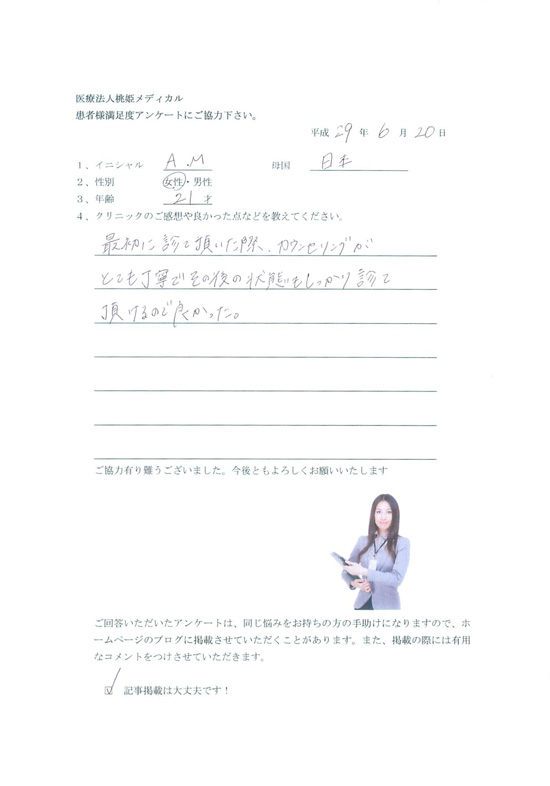 医療法人桃姫メディカル
患者様満足度アンケートにご協力下さい。
平成 29 年 6 月 20 日
1、イニシャル A.M 母国 日本
2、性別 女性・男性
3、年齢 21 才
4、クリニックのご感想や良かった点などを教えてください。
最初に診て頂いた際、カウンセリングが
とても丁寧でその後の状態もしっかり診て
頂けるので良かった。
ご協力有り難うございました。今後ともよろしくお願いいたします
ご回答いただいたアンケートは、同じ悩みをお持ちの方の手助けになりますので、ホ
ームページのブログに掲載させていただくことがあります。また、掲載の際には有用
なコメントをつけさせていただきます。
☑ 記事掲載は大丈夫です！